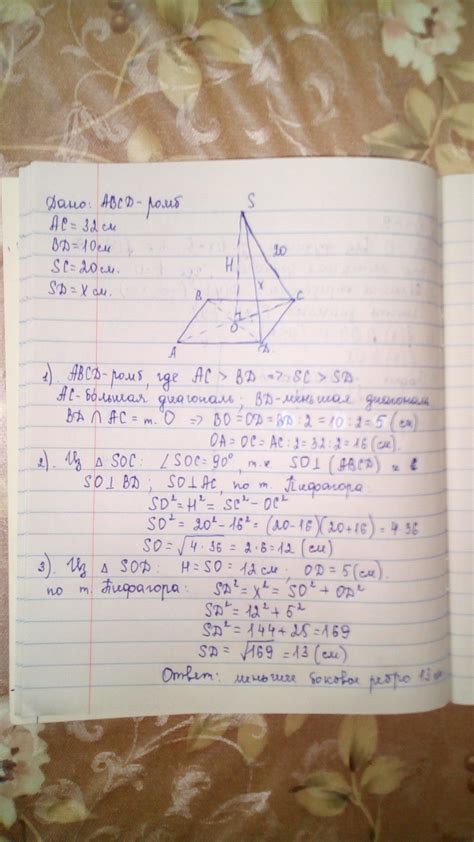 Дано: ABCD-ромб
AC=32см
BD=10см
SC=20см.
SD=x см.
S
20
H
x
B
C
O
A
D
1). ABCD-ромб, где AC > BD => SC > SD
AC-большая диагональ; BD-меньшая диагональ
BD ∩ AC = т. O => BO=OD=BD:2=10:2=5 (см)
OA=OC=AC:2=32:2=16(см).
2). Из △ SOC: ∠SOC=90°, т.к SO⊥(ABCD) и
SO⊥BD; SO⊥AC, по т. Пифагора:
SO²=H²=SC²-OC²
SO²=20²-16²=(20-16)(20+16)=4·36
SO=√4·36 = 2·6=12 (см)
3). Из △ SOD: H=SO=12см; OD=5(см).
по т. Пифагора: SD²=x²=SO²+OD²
SD²=12²+5²
SD²=144+25=169
SD=√169=13(см)
Ответ: меньшее боковое ребро 13 см